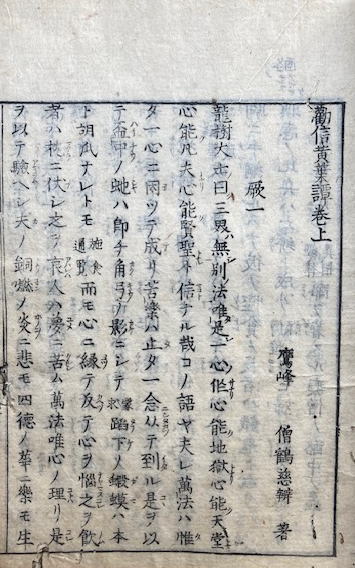 勸信黄葉譚卷上
鷹峰 僧鶴慈辯 著
厥一
龍樹大士曰三界無別法唯是一心作心能地獄心能天堂
心能凡夫心能賢聖ト信ナル哉コノ語ヤ夫レ萬法ハ惟
タ一心ニ由ツテ成リ苦樂ハ止タ一念从テ到ル是ヲ以
テ盃中ノ蛇ハ即チ角弓ノ影ニシテ 求 蹈下ノ蝦蟆ハ本
ト胡瓜ナレトモ 施食通覽 而モ心ニ縁テ反テ心ヲ惱之ヲ飮
者ハ枕ニ伏シ之ヲ 人ハ憂ニ苦ム萬法唯心ノ理リ是
ヲ以テ驗ヘシ夫ノ銅燃ノ炎ニ悲モ四德ノ華ニ樂モ生